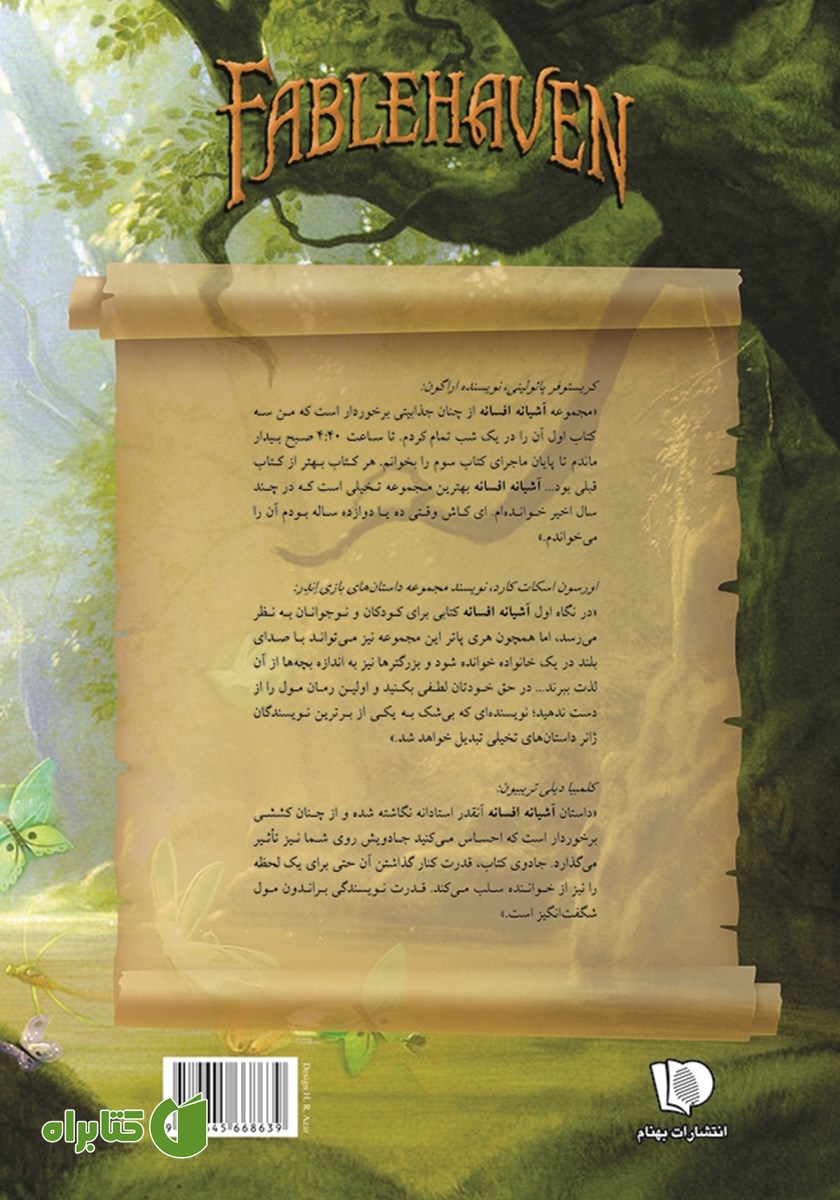 FABLEHAVEN
کریستوفر پائولینی، نویسنده اراگون:
«مجموعه آشیانه افسانه از چنان جذابیتی برخوردار است که من سه
کتاب اول آن را در یک شب تمام کردم. تا ساعت ۴:۴۰ صبح بیدار
ماندم تا پایان ماجرای کتاب سوم را بخوانم. هر کتاب بهتر از کتاب
قبلی بود... آشیانه افسانه بهترین مجموعه تخیلی است که در چند
سال اخیر خوانده‌ام. ای کاش وقتی ده یا دوازده ساله بودم آن را
می‌خواندم.»
اورسون اسکات کارد، نویسند مجموعه داستان‌های بازی اِندِر:
«در نگاه اول آشیانه افسانه کتابی برای کودکان و نوجوانان به نظر
می‌رسد، اما همچون هری پاتر این مجموعه نیز می‌تواند با صدای
بلند در یک خانواده خوانده شود و بزرگترها نیز به اندازه بچه‌ها از آن
لذت ببرند... در حق خودتان لطفی بکنید و اولین رمان مول را از
دست ندهید؛ نویسنده‌ای که بی‌شک به یکی از برترین نویسندگان
ژانر داستان‌های تخیلی تبدیل خواهد شد.»
کلمبیا دیلی تریبیون:
«داستان آشیانه افسانه آنقدر استادانه نگاشته شده و از چنان کششی
برخوردار است که احساس می‌کنید جادویش روی شما نیز تأثیر
می‌گذارد. جادوی کتاب، قدرت کنار گذاشتن آن حتی برای یک لحظه
را نیز از خواننده سلب می‌کند. قدرت نویسندگی براندون مول
شگفت‌انگیز است.»
Design H. R. Azar
668639
کتابراه
انتشارات بهنام